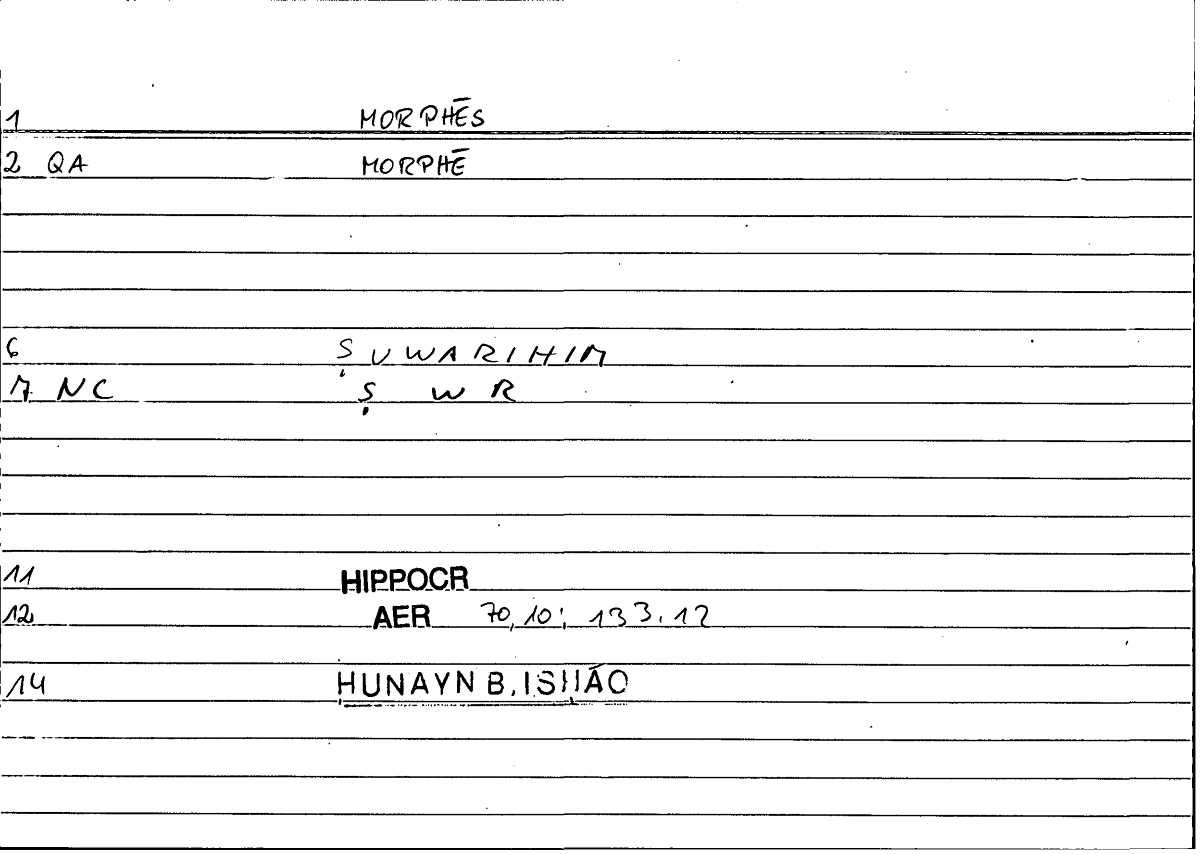 1 MORPHĒS
2 QA MORPHĒ
6 ṢUWARIHIM
7 NC Ṣ W R
11 HIPPOCR
12 AER 70,10; 133.12
14 ḤUNAYN B. ISḤĀQ